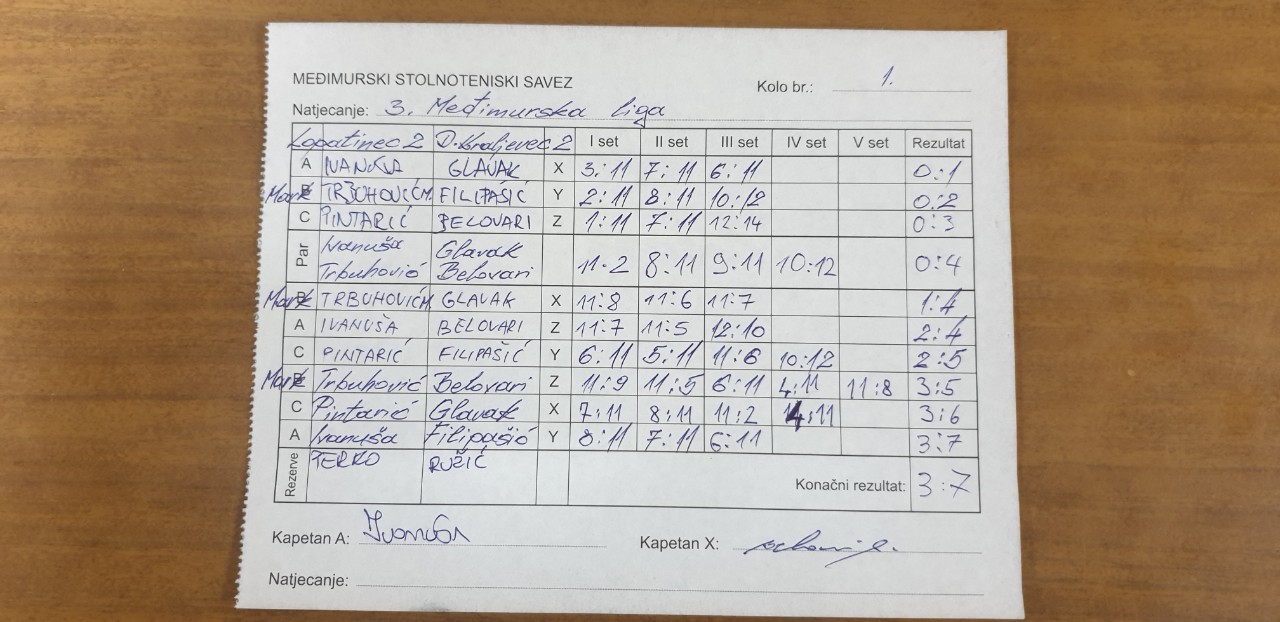 MEĐIMURSKI STOLNOTENISKI SAVEZ Kolo br.: 1.
Natjecanje: 3. Međimurska liga
Lopatinec 2 D. Kraljevec 2 I set II set III set IV set V set Rezultat
A GLAVAK X 3:11 7:11 6:11 0:1
FILIPAŠIĆ Y 2:11 8:11 10:12 0:2
C PINTARIĆ BELOVARI Z 1:11 7:11 12:14 0:3
Par Ivanuša Glavak
Trbuhović Belovari 11:2 8:11 9:11 10:12 0:4
B TRBUHOVIĆ M. GLAVAK X 11:8 11:6 11:7 1:4
A IVANUŠA BELOVARI Z 11:7 11:5 12:10 2:4
C PINTARIĆ FILIPAŠIĆ Y 6:11 5:11 11:6 10:12 2:5
B Trbuhović Belovari Z 11:9 11:5 6:11 4:11 11:8 3:5
C Pintarić Glavak X 7:11 8:11 11:2 4:11 3:6
A Ivanuša Filipašić Y 8:11 7:11 6:11 3:7
Rezerve RUŽIĆ Konačni rezultat: 3:7
Kapetan A: Kapetan X:
Natjecanje: